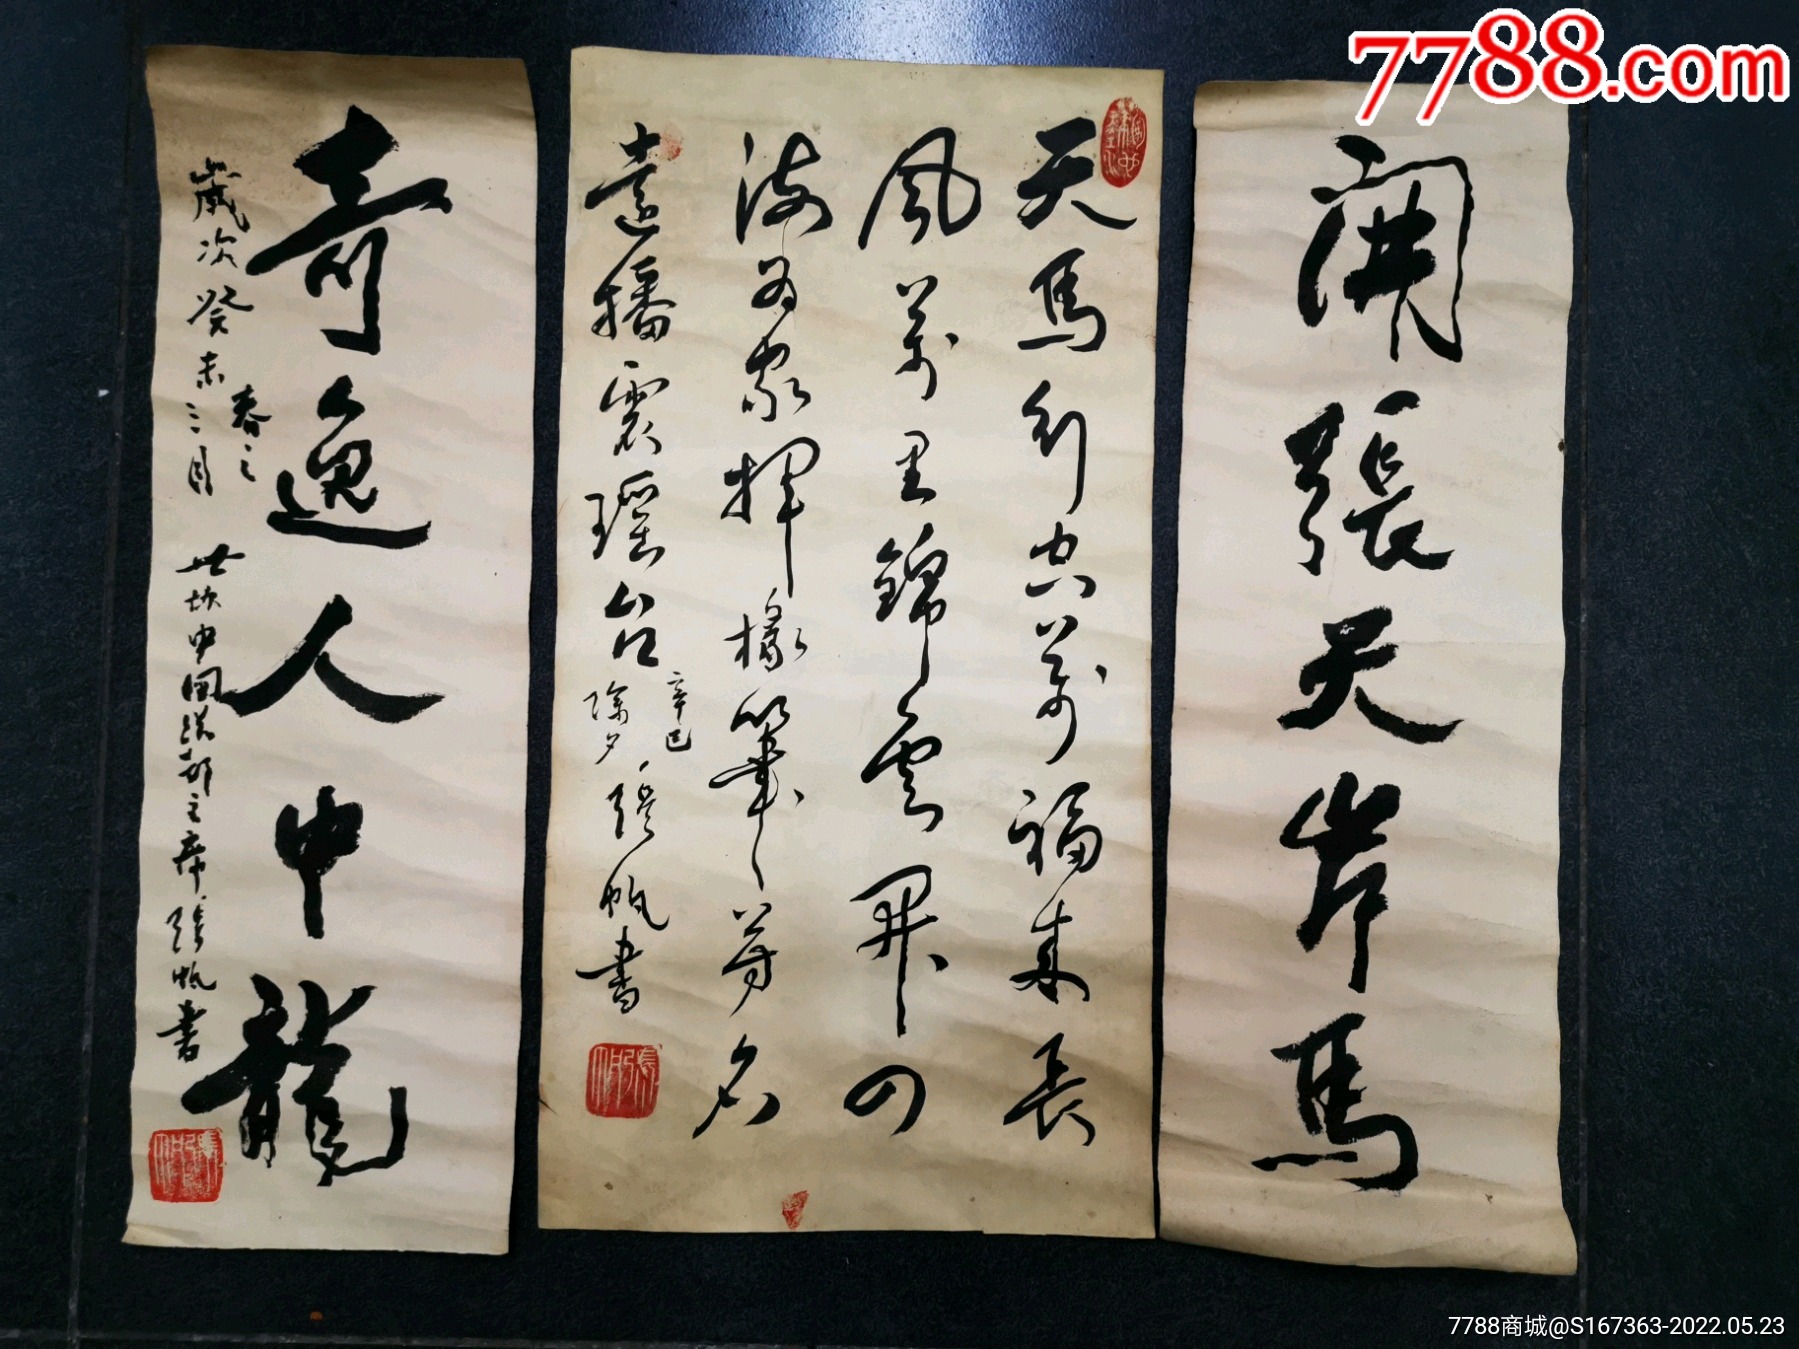 7788.com
開張天岸馬
天馬行空萬福來長
風萬里錦雲開四
海为家揮椽筆芳名
遠播震瑶台
辛巳
除夕
張帆書
奇逸人中龍
春之
歲次癸未三月
中國 主席張帆書
7788商城@S167363-2022.05.23